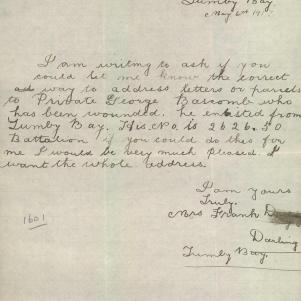 Tumby Bay
May 6th 191
I am writing to ask if you
could let me know the correct
way to address letters or parcels
to Private George Bascomb who
has been wounded. he enlisted from
Tumby Bay. His No is 2626. 50
Battalion if you could do this for
me I would be very much pleased. I
want the whole address.
I am yours
Truly.
Mrs Frank
Darling
Tumby Bay.
1601